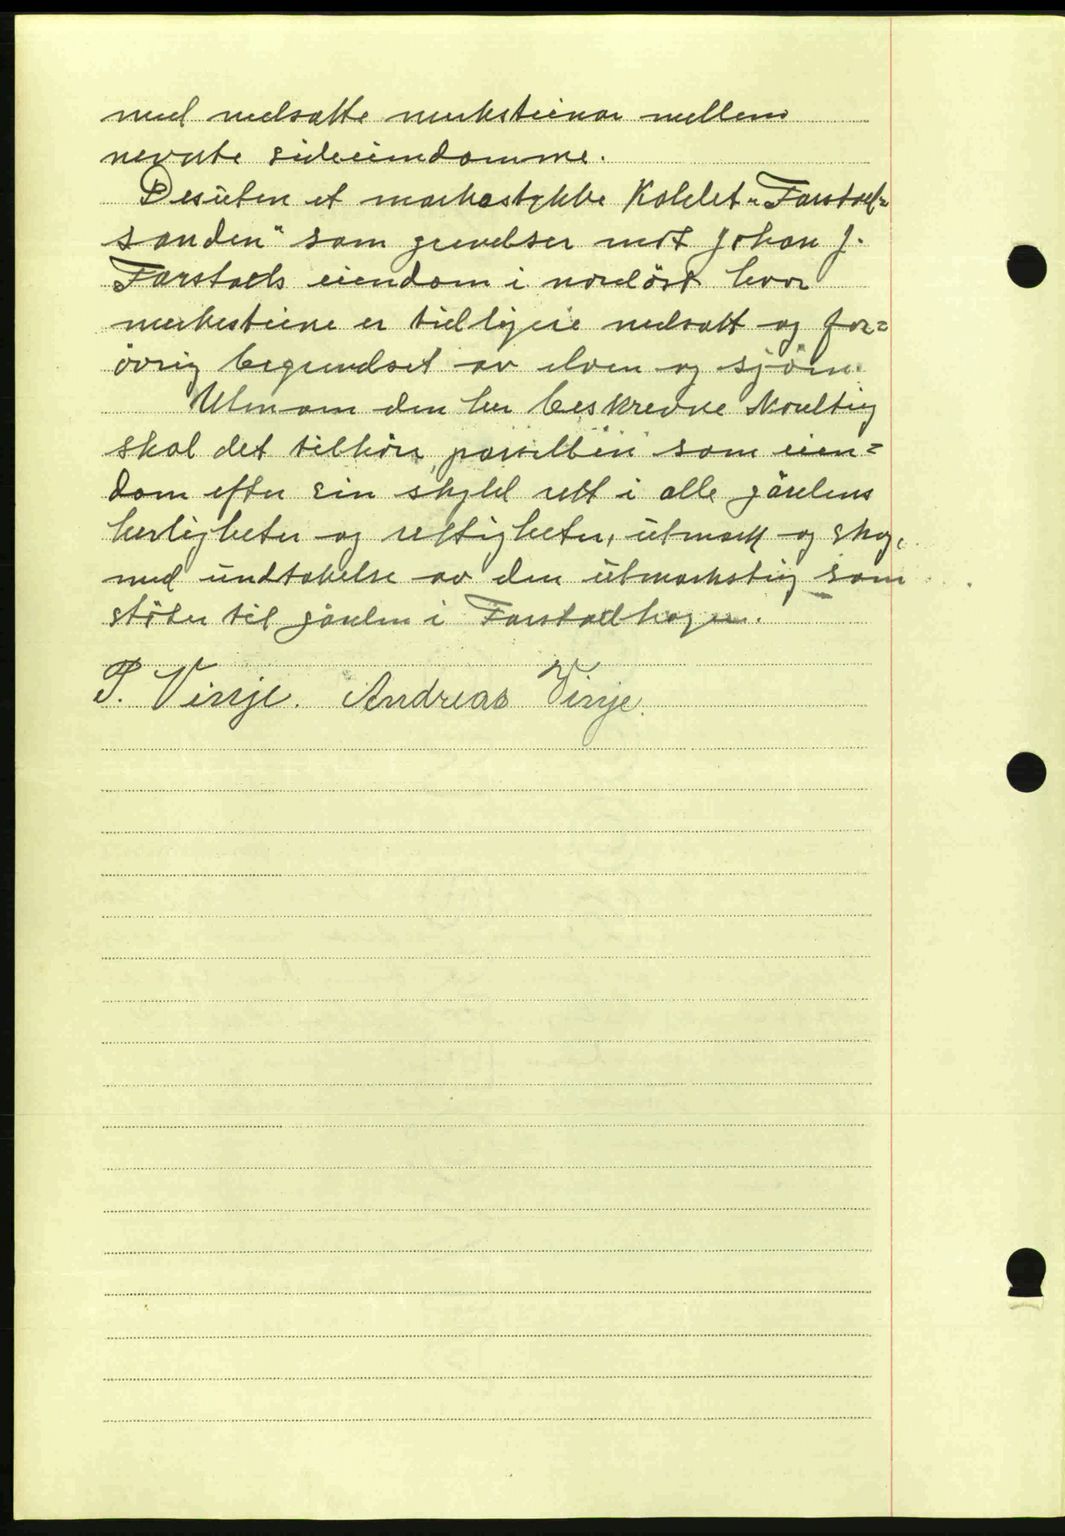 med nedsatte merkstienar mellem
nevnte sideeiendomme.
Desuten et markastykke Kaldet "Farstad-
sanden" som grendser mot Johan J.
Farstads eiendom i nordöst hvor
merkesteine er tidligere nedsatt og for=
övrig begrendset av elven og sjöen.
Utenom den her beskrevne
skal det tilhöre parsellen som eien=
dom efter sin skyld rett i alle gårdens
herligheter og rettigheter, utmark og skog,
med undtakelse av den utmarksteig som
stöter til gården i Farstadhagen.
P. Vinje. Andreas Vinje.